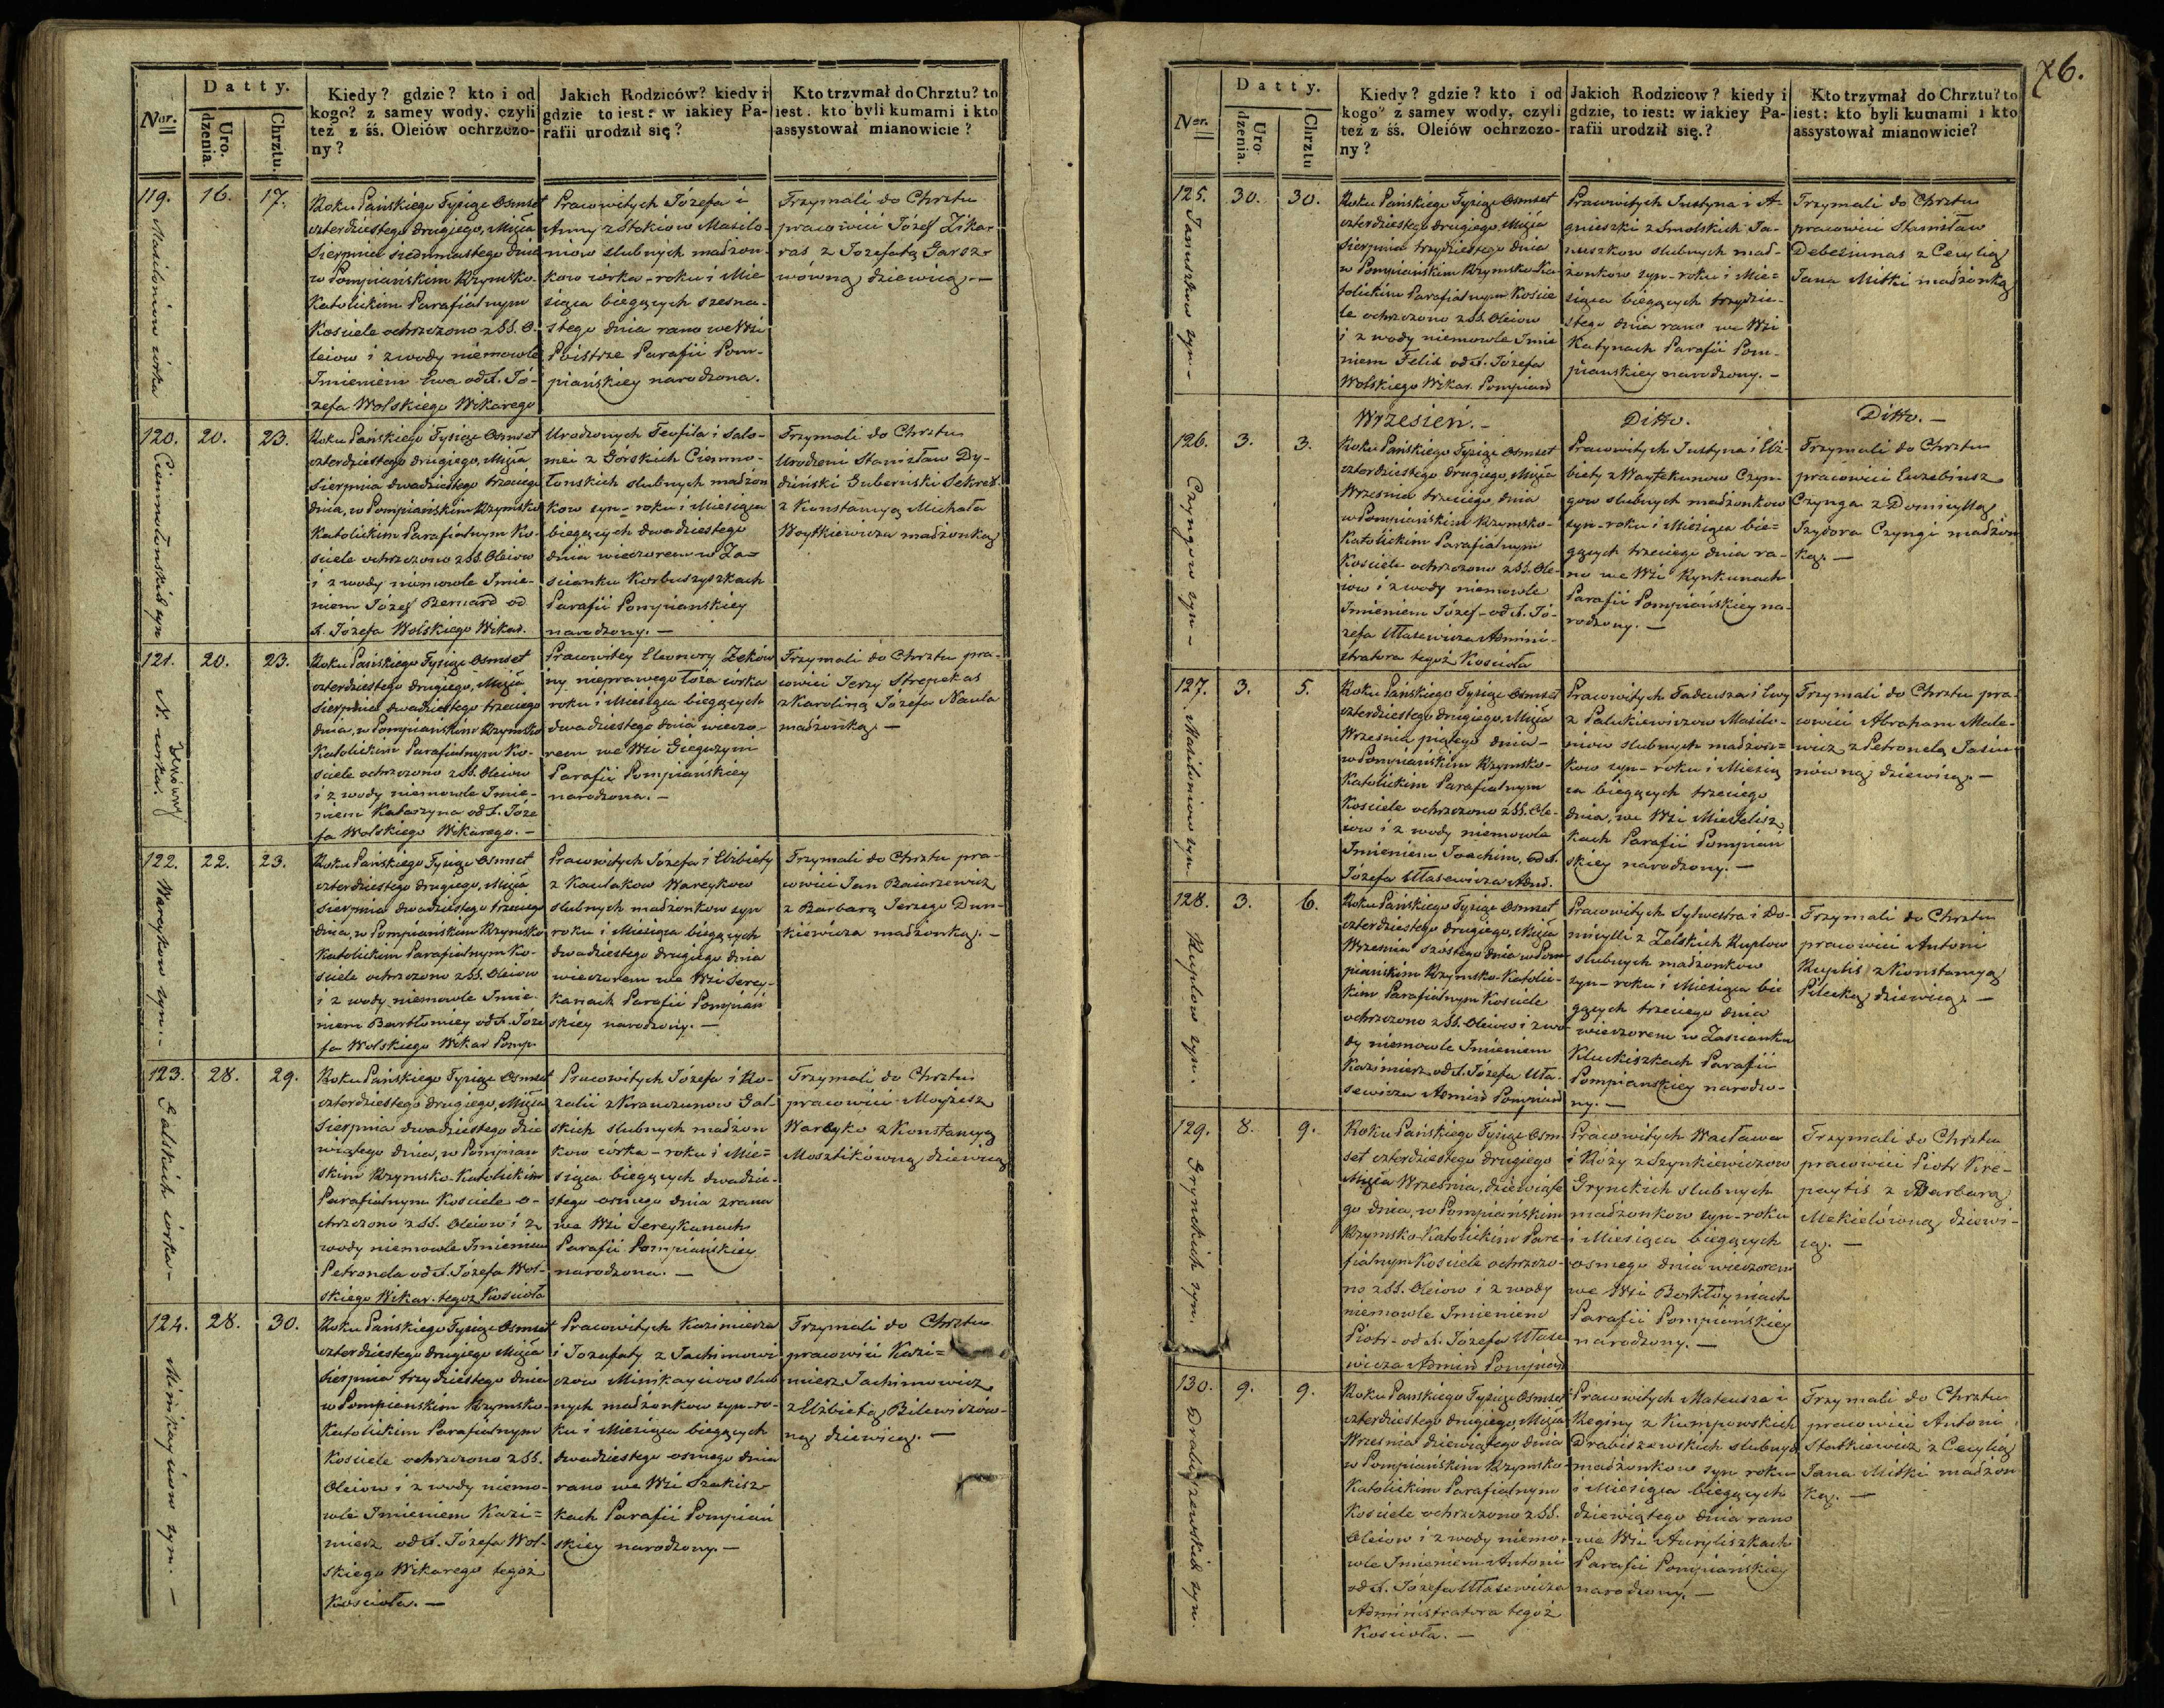 76.
Datty.
Nor.
Uro.
dzenia.
Chrztu.
Kiedy? gdzie? kto i od
kogo? z samey wody, czyli
też z śś. Oleiów ochrzczo-
ny?
Jakich Rodziców? kiedy i
gdzie to iest: w iakiey Pa-
rafii urodził się?
Kto trzymał do Chrztu? to
iest. kto byli kumami i kto
assystował mianowicie?
119.
16.
17.
Masiloniow córka
Roku Pańskiego Tysiąc Osmset
czterdziestego drugiego, Msca
Sierpnia siedmnastego dnia
w Pompiańskim Rzymsko-
Katolickim Parafialnym
Kosciele ochrzczono z SS. O-
leiow i z wody niemowle
Imieniem Ewa od X. Jó-
zefa Wolskiego Wikarego
Pracowitych Józefa i
Anny z Stokiow Masilo-
niow slubnych małżon-
kow corka - roku i Mie-
siąca bieżących szesna-
stego dnia rano we Wsi
Poistrze Parafii Pom-
piańskiey narodzona.
Trzymali do Chrztu
pracowici Józef Zika-
ras z Jozefatą Garsz-
wówną dziewicą. -
120.
20.
23.
Ciemnołonskich syn
Roku Pańskiego Tysiąc Osmset
czterdziestego drugiego, Msca
Sierpnia dwadziestego trzeciego
dnia, w Pompiańskim Rzymsko
Katolickim Parafialnym Ko-
sciele ochrzczono z SS. Oleiow
i z wody niemowle Imie-
niem Józef Bernard od
X. Józefa Wolskiego Wikar.
Urodzonych Teofila i Salo-
mei z Górskich Ciemno-
łonskich slubnych małżon
kow syn - roku i Miesiąca
bieżących dwadziestego
dnia wieczorem w Za-
scianku Korbuszyszkach
Parafii Pompianskiey
narodzony. -
Trzymali do Chrztu
Urodzeni Stanisław Dy-
dziński Guberński Sekret.
z Konstancyą Michała
Woytkiewicza małżonką
121.
20.
23.
N. Zekówny corka.
Roku Pańskiego Tysiąc Osmset
czterdziestego drugiego, Msca
Sierpnia dwadziestego trzeciego
dnia, w Pompiańskim Rzymsko
Katolickim Parafialnym Ko-
sciele ochrzczono z SS. Oleiow
i z wody niemowle Imie-
niem Katarzyna od X. Józe
fa Wolskiego Wikarego. -
Pracowitey Eleonory Zeków
ny nieprawego łoża corka
roku i Miesiąca bieżących
dwadziestego dnia wieczo-
rem we Wsi Gieguzym
Parafii Pompiańskiey
narodzona. -
Trzymali do Chrztu pra-
cowici Jerzy Strepekas
z Karoliną Józefa Naula
małżonką. -
122.
22.
23.
Wareykow syn. -
Roku Pańskiego Tysiąc Osmset
czterdziestego drugiego, Msca
Sierpnia dwadziestego trzeciego
dnia, w Pompiańskim Rzymsko
Katolickim Parafialnym Ko-
sciele ochrzczono z SS. Oleiow
i z wody niemowle Imie-
niem Bartłomiey od X. Józe
fa Wolskiego Wikar Pomp.
Pracowitych Józefa i Elżbiety
z Kaulakow Wareykow
slubnych małżonkow syn
roku i Miesiąca bieżących
dwadziestego drugiego dnia
wieczorem we Wsi Serey-
kanach Parafii Pompiań
skiey narodzony. -
Trzymali do Chrztu pra-
cowici Jan Baiarzewicz
z Barbarą Jerzego Dun-
kiewicza małżonką. -
123.
28.
29.
Galskich córka -
Roku Pańskiego Tysiąc Osmset
czterdziestego drugiego, Msca
Sierpnia dwadziestego dzie
wiątego dnia, w Pompian
skim Rzymsko-Katolickim
Parafialnym Kosciele o-
chrzczono z SS. Oleiow i z
wody niemowle Imieniem
Petronela od X. Józefa Wol-
skiego Wikar. tegoż Kościoła
Pracowitych Józefa i Ro-
zalii z Krauczunow Gal-
skich slubnych małżon
kow córka - roku i Mie=
siąca bieżących dwadzie-
stego osmego dnia zrana
we Wsi Sereykanach
Parafii Pompiańskiey
narodzona. -
Trzymali do Chrztu
pracowici Moyżesz
Wareyko z Konstancyą
Mosztikówną dziewicą
124.
28.
30.
Minikayciow syn. -
Roku Pańskiego Tysiąc Osmset
czterdziestego drugiego Msca
Sierpnia trzydziestego dnia
w Pompiańskim Rzymsko-
Katolickim Parafialnym
Kosciele ochrzczono z SS.
Oleiow i z wody niemo-
wle Imieniem Kazi=
mierz od X. Józefa Wol-
skiego Wikarego tegoż
Kościoła. -
Pracowitych Kazimierza
i Jozafaty z Jachimowi
czow Minikayciow slub
nych małżonkow syn - ro-
ku i Miesiąca bieżących
dwadziestego osmego dnia
rano we Wsi Szakisz-
kach Parafii Pompian
skiey narodzony. -
Trzymali do Chrztu
pracowici Kazi=
mierz Jachimowicz
z Elżbietą Bilewiczów-
ną dziewicą. -
Datty.
Nor.
Uro
dzenia.
Chrztu
Kiedy? gdzie? kto i od
kogo? z samey wody, czyli
też z śś. Oleiów ochrzczo-
ny?
Jakich Rodzicow? kiedy i
gdzie, to iest: w iakiey Pa-
rafii urodził się.?
Kto trzymał do Chrztu? to
iest: kto byli kumami i kto
assystował mianowicie?
125.
30.
30.
Januszkow syn. -
Roku Pańskiego Tysiąc Osmset
czterdziestego drugiego, Msca
Sierpnia trzydziestego dnia
w Pompiańskim Rzymsko-Ka-
tolickim Parafialnym Koscie
le ochrzczono z SS. Oleiow
i z wody niemowle Imie
niem Felix od X. Józefa
Wolskiego Wikar. Pompian
Pracowitych Justyna i A-
gnieszki z Smolskich Ja-
nuszkow slubnych mał-
żonkow syn - roku i Mie=
siąca bieżących trzydzie-
stego dnia rano we Wsi
Katynach Parafii Pom-
pianskiey narodzony. -
Trzymali do Chrztu
pracowici Stanisław
Debesiunas z Cecylią
Jana Mitki małżonką
Wrzesień. -
Ditto.
Ditto. -
126.
3.
3.
Czyngow syn -
Roku Pańskiego Tysiąc Osmset
czterdziestego drugiego, Msca
Wrzesnia trzeciego dnia
w Pompiańskim Rzymsko-
Katolickim Parafialnym
Kosciele ochrzczono z SS. Ole-
iow i z wody niemowle
Imieniem Józef - od X. Jó-
zefa Ułasewicza Admini-
stratora tegoż Kościoła
Pracowitych Justyna i Elż-
biety z Waytekunow Czyn-
gow slubnych małżonkow
syn - roku i Miesiąca bie=
żących trzeciego dnia ra-
no we Wsi Rynkunach
Parafii Pompiańskiey na-
rodzony. -
Trzymali do Chrztu
pracowici Euzebiusz
Czynga z Domicellą
Izydora Czyngi małżon
ką. -
127.
3.
5.
Masiloniow syn
Roku Pańskiego Tysiąc Osmset
czterdziestego drugiego, Msca
Wrzesnia piątego dnia -
w Pompiańskim Rzymsko-
Katolickim Parafialnym
Kosciele ochrzczono z SS. Ole-
iow i z wody niemowle
Imieniem Joachim, od X.
Jozefa Ułasewicza Admi.
Pracowitych Tadeusza i Ewy
z Palukiewiczow Masilo-
niow slubnych małżon=
kow syn - roku i Miesią
ca bieżących trzeciego
dnia, we Wsi Mieżelisz
kach Parafii Pompian
skiey narodzony. -
Trzymali do Chrztu pra-
cowici Abraham Male-
wicz z Petronelą Jasiu-
nówną dziewicą. -
128.
3.
6.
Ruplow syn.
Roku Pańskiego Tysiąc Osmset
czterdziestego drugiego, Msca
Wrzesnia szóstego dnia w Pom
piańskim Rzymsko-Katolic-
kim Parafialnym Kosciele
ochrzczono z SS. Oleiow i z wo-
dy niemowle Imieniem
Kazimierz od X. Józefa Uła-
sewicza Admin Pompian
Pracowitych Sylwestra i Do-
micylli z Zelskich Ruplow
slubnych małżonkow
syn - roku i Miesiąca bie
żących trzeciego dnia
wieczorem w Zascianku
Kluckiszkach Parafii
Pompianskiey narodzo-
ny. -
Trzymali do Chrztu
pracowici Antoni
Ruplis z Konstancyą
Pilecką dziewicą. -
129.
8.
9.
Grynckich syn.
Roku Pańskiego Tysiąc Osm-
set czterdziestego drugiego
Msca Wrzesnia, dziewiąte
go dnia, w Pompiańskim
Rzymsko-Katolickim Para-
fialnym Kosciele ochrzczo-
no z SS. Oleiow i z wody
niemowle Imieniem
Piotr - od X. Józefa Ułase
wicza Admin Pompian
Pracowitych Wacława
i Róży z Szynkiewiczow
Grynckich slubnych
małżonkow syn - roku
i Miesiąca bieżących
osmego dnia wieczorem
we Wsi Berkłoyniach
Parafii Pompiańskiey
narodzony. -
Trzymali do Chrztu
pracowici Piotr Kre-
paytis z Barbarą
Mekielówną dziewi-
cą. -
130.
9.
9.
Drabiszewskich syn.
Roku Pańskiego Tysiąc Osmset
czterdziestego drugiego, Msca
Wrzesnia dziewiątego dnia
w Pompiańskim Rzymsko-
Katolickim Parafialnym
Kosciele ochrzczono z SS.
Oleiow i z wody niemo-
wle Imieniem Antoni
od X. Józefa Ułasewicza
Administratora tegoż
Kościoła. -
Pracowitych Mateusza i
Reginy z Kumpowskich
Drabiszewskich slubnych
małżonkow syn roku
i Miesiąca bieżących
dziewiątego dnia rano
we Wsi Auryliszkach
Parafii Pompiańskiey
narodzony. -
Trzymali do Chrztu
pracowici Antoni
Statkiewicz z Cecylią
Jana Mitki małżon
ką. -